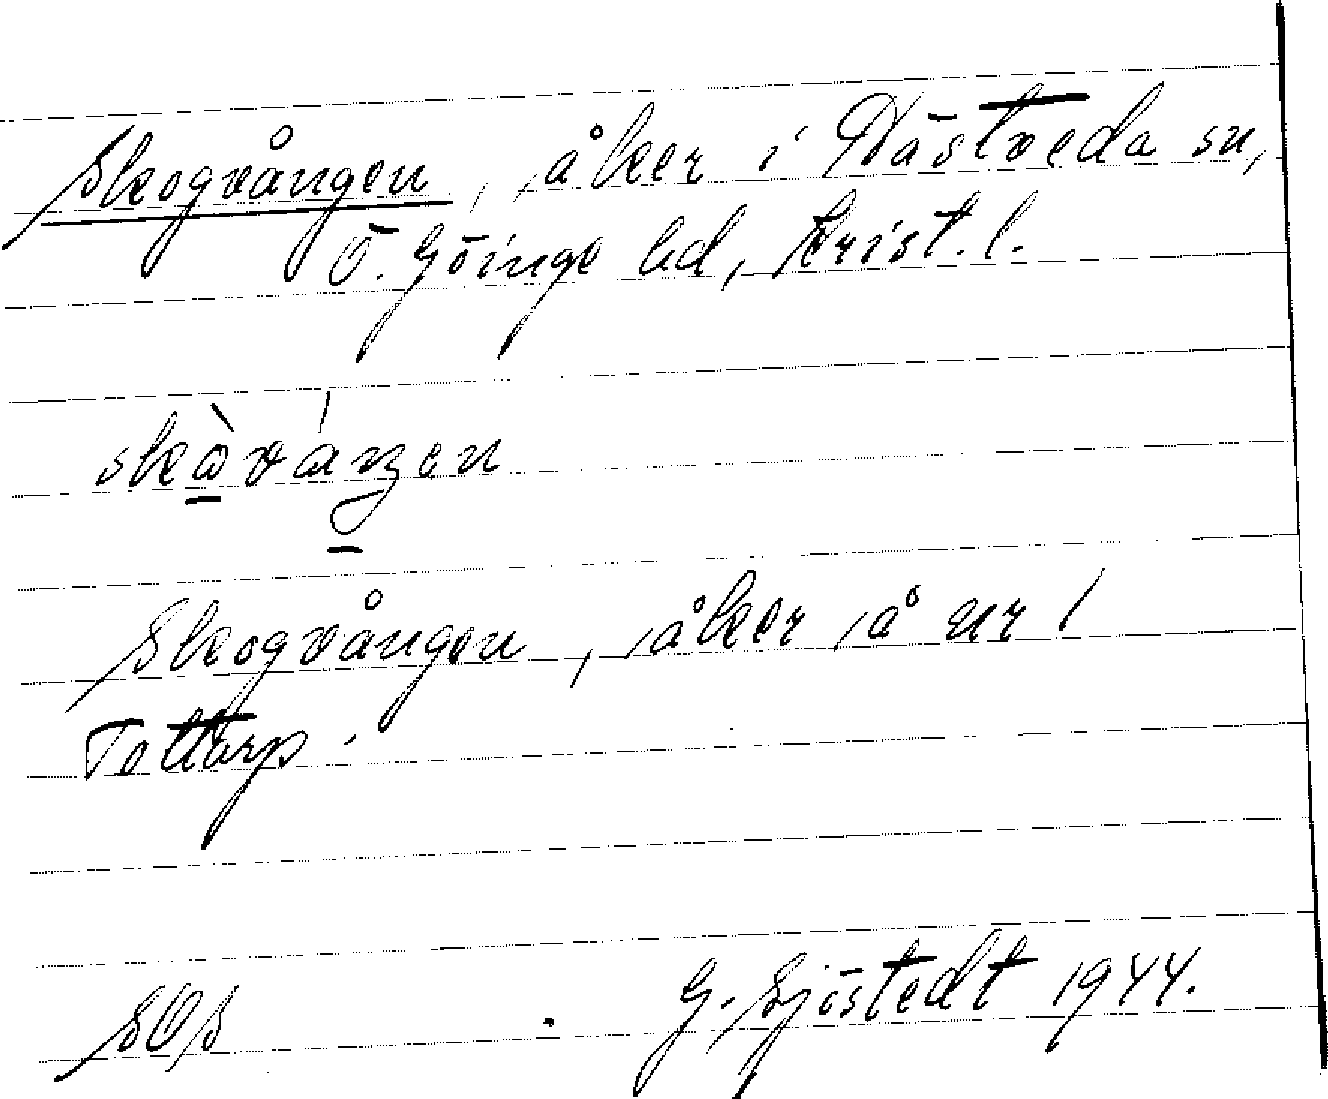 Skogvången, åker i Västveda sn,
Ö. Göinge hd, Krist. l.
Skogvången, åker å nr 1
Tottarp.
G. Sjöstedt 1944.